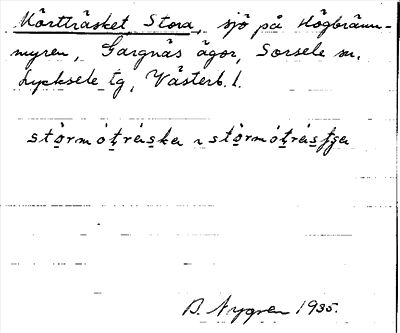 Mörtträsket Stora, sjö på Högbränn-
myren, Gargnäs ägor, Sorsele sn,
Lycksele tg, Västerb. l.
stòrmótrèska ~ stòrmótrèsʃʒa
B. Nygren 1935.